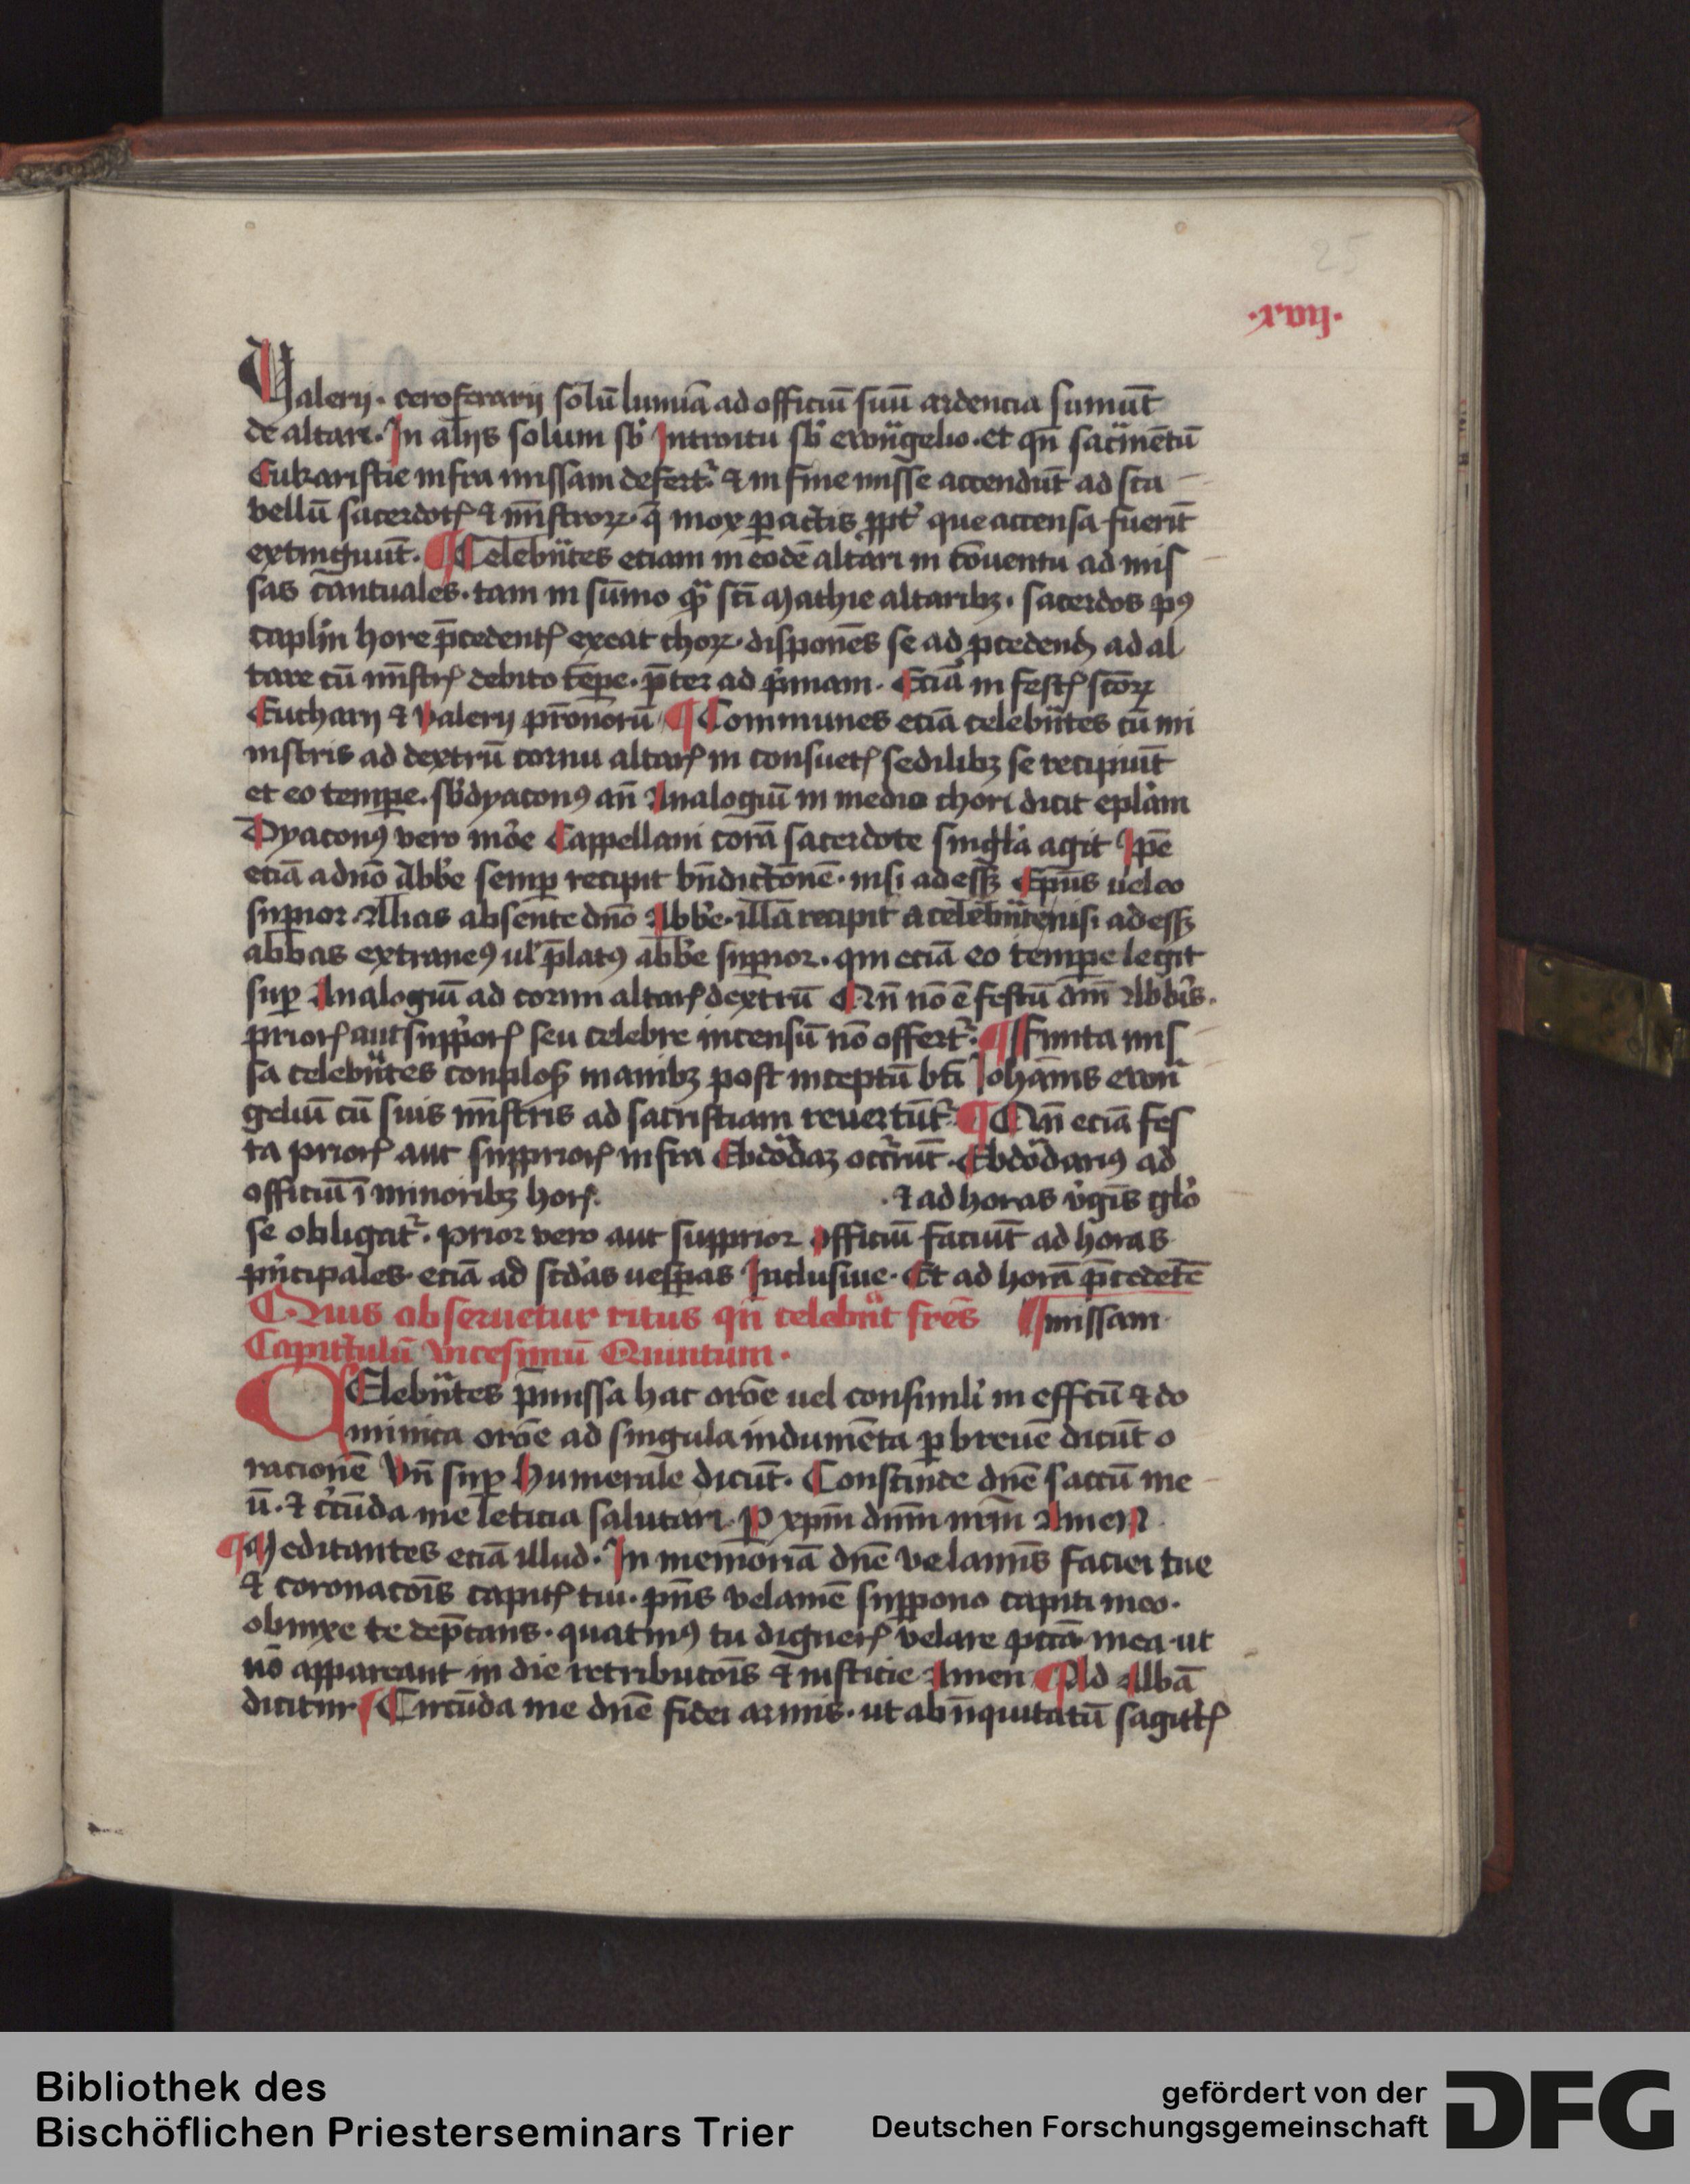 25
·xvıȷ·
Valerij. ceroferarij solū lumīa ad officiū suū ardencia sumūt
de altari. In alijs solum sb Introitu sb ewāgelio. et qn̄ sacͣmētū
Eukaristie infra missam defertᷣ ⁊ in fine misse accendūt ad sca
bellū sacerdotꝭ ⁊ mīstroꝝ. q̄ mox ꝑactis que accensa fuerīt
extinguūt. ¶ Celebrͣntes eciam in eodē altari in cōuentu ad mis
sas cāntuales. tam in sūmo qͣꝫ sc̄i Mathie altaribꝫ. sacerdos pꝰ
caplm̄ hore p̄cedentꝭ exeat choꝝ. disponēs se ad ꝓcedendū ad al
tare cū mīstrꝭ debito tēpe. p̄ter ad pͥmam. Eciā in festꝭ sc̄oꝝ
Eucharij ⁊ Valerij pr̄onorū ¶ Communes eciā celebrͣntes cū mi
nistris ad dextrū cornu altarꝭ in consuetꝭ sedilibꝫ se recipiūt
et eo tempe. sb̄dyaconꝰ an̄ Analogiū in medio chori dicit eplam
Dyaconꝰ vero mōe Cappellani corā sacerdote singl̓a agit Ip̄e
eciā a dn̄o Abb̓e semꝑ recipit bn̄dictōnē. nisi adessꝫ Ep̄us uel eo
superior. Alias absente dn̄o Abb̓e. illā recipit a celebrͣnte nisi adessꝫ
abbas extraneꝰ ul̓ p̄latꝰ abb̓e superior. qui eciā eo tempe legit
suꝑ Analogiū ad cornu altarꝭ dextrū Qn̄ nō ē festū dn̄i Abb̓is.
priorꝭ aut supp̓orꝭ seu celebre incensū nō offertᷣ. ¶ Finita mis
sa celebrͣntes conplosꝭ manibꝫ post inceptū bt̄i Johānis ewan
geliū cū suis mīstris ad sacristiam reuertūtᷣ ¶ Qn̄ eciā fes
ta priorꝭ aut suppriorꝭ infra Ebdōdaꝫ occr̄rūt. Ebdōdariꝰ ad
officiū ī minoribꝫ horꝭ. . ⁊ ad horas v̓gīs glo̓
se obligatᷣ. prior vero aut supprior officiū faciūt ad horas
pͥncipales. eciā ad scd̓as uesꝑas Inclusiue. Et ad horā p̄cedētē
Quis obseruetur ritus qn̄ celebrͣnt fr̄es ¶ missam
Capittulū vicesimū Quintum.
CElebrͣntes p̄missa hac orōe uel consimili in effc̄tū ⁊ do
minica orōe ad singula indumēta ꝑ breuē dicūt o
racionē Vn̄ suꝑ Humerale dicūt. Conscinde dn̄e saccū me
ū. ⁊ c̓cūda me leticia salutari. ꝑ xp̄m dn̄m nr̄m Amen.
¶ Meditantes eciā illud. In memoriā dn̄e velamīs faciei tue
⁊ coronacōis capitꝭ tui. pn̄s velamē suppono capiti meo.
obnixe te dep̄cans. quatinꝰ tu dignerꝭ velare pcc̄ā mea. ut
nō appareant in die retribucōis ⁊ iusticie Amen ¶ Ad Albā
dicitur ¶ Circūda me dn̄e fidei armis. ut ab īiquitatū sagittꝭ
Bibliothek des
Bischöflichen Priesterseminars Trier
gefördert von der
Deutschen Forschungsgemeinschaft
DFG